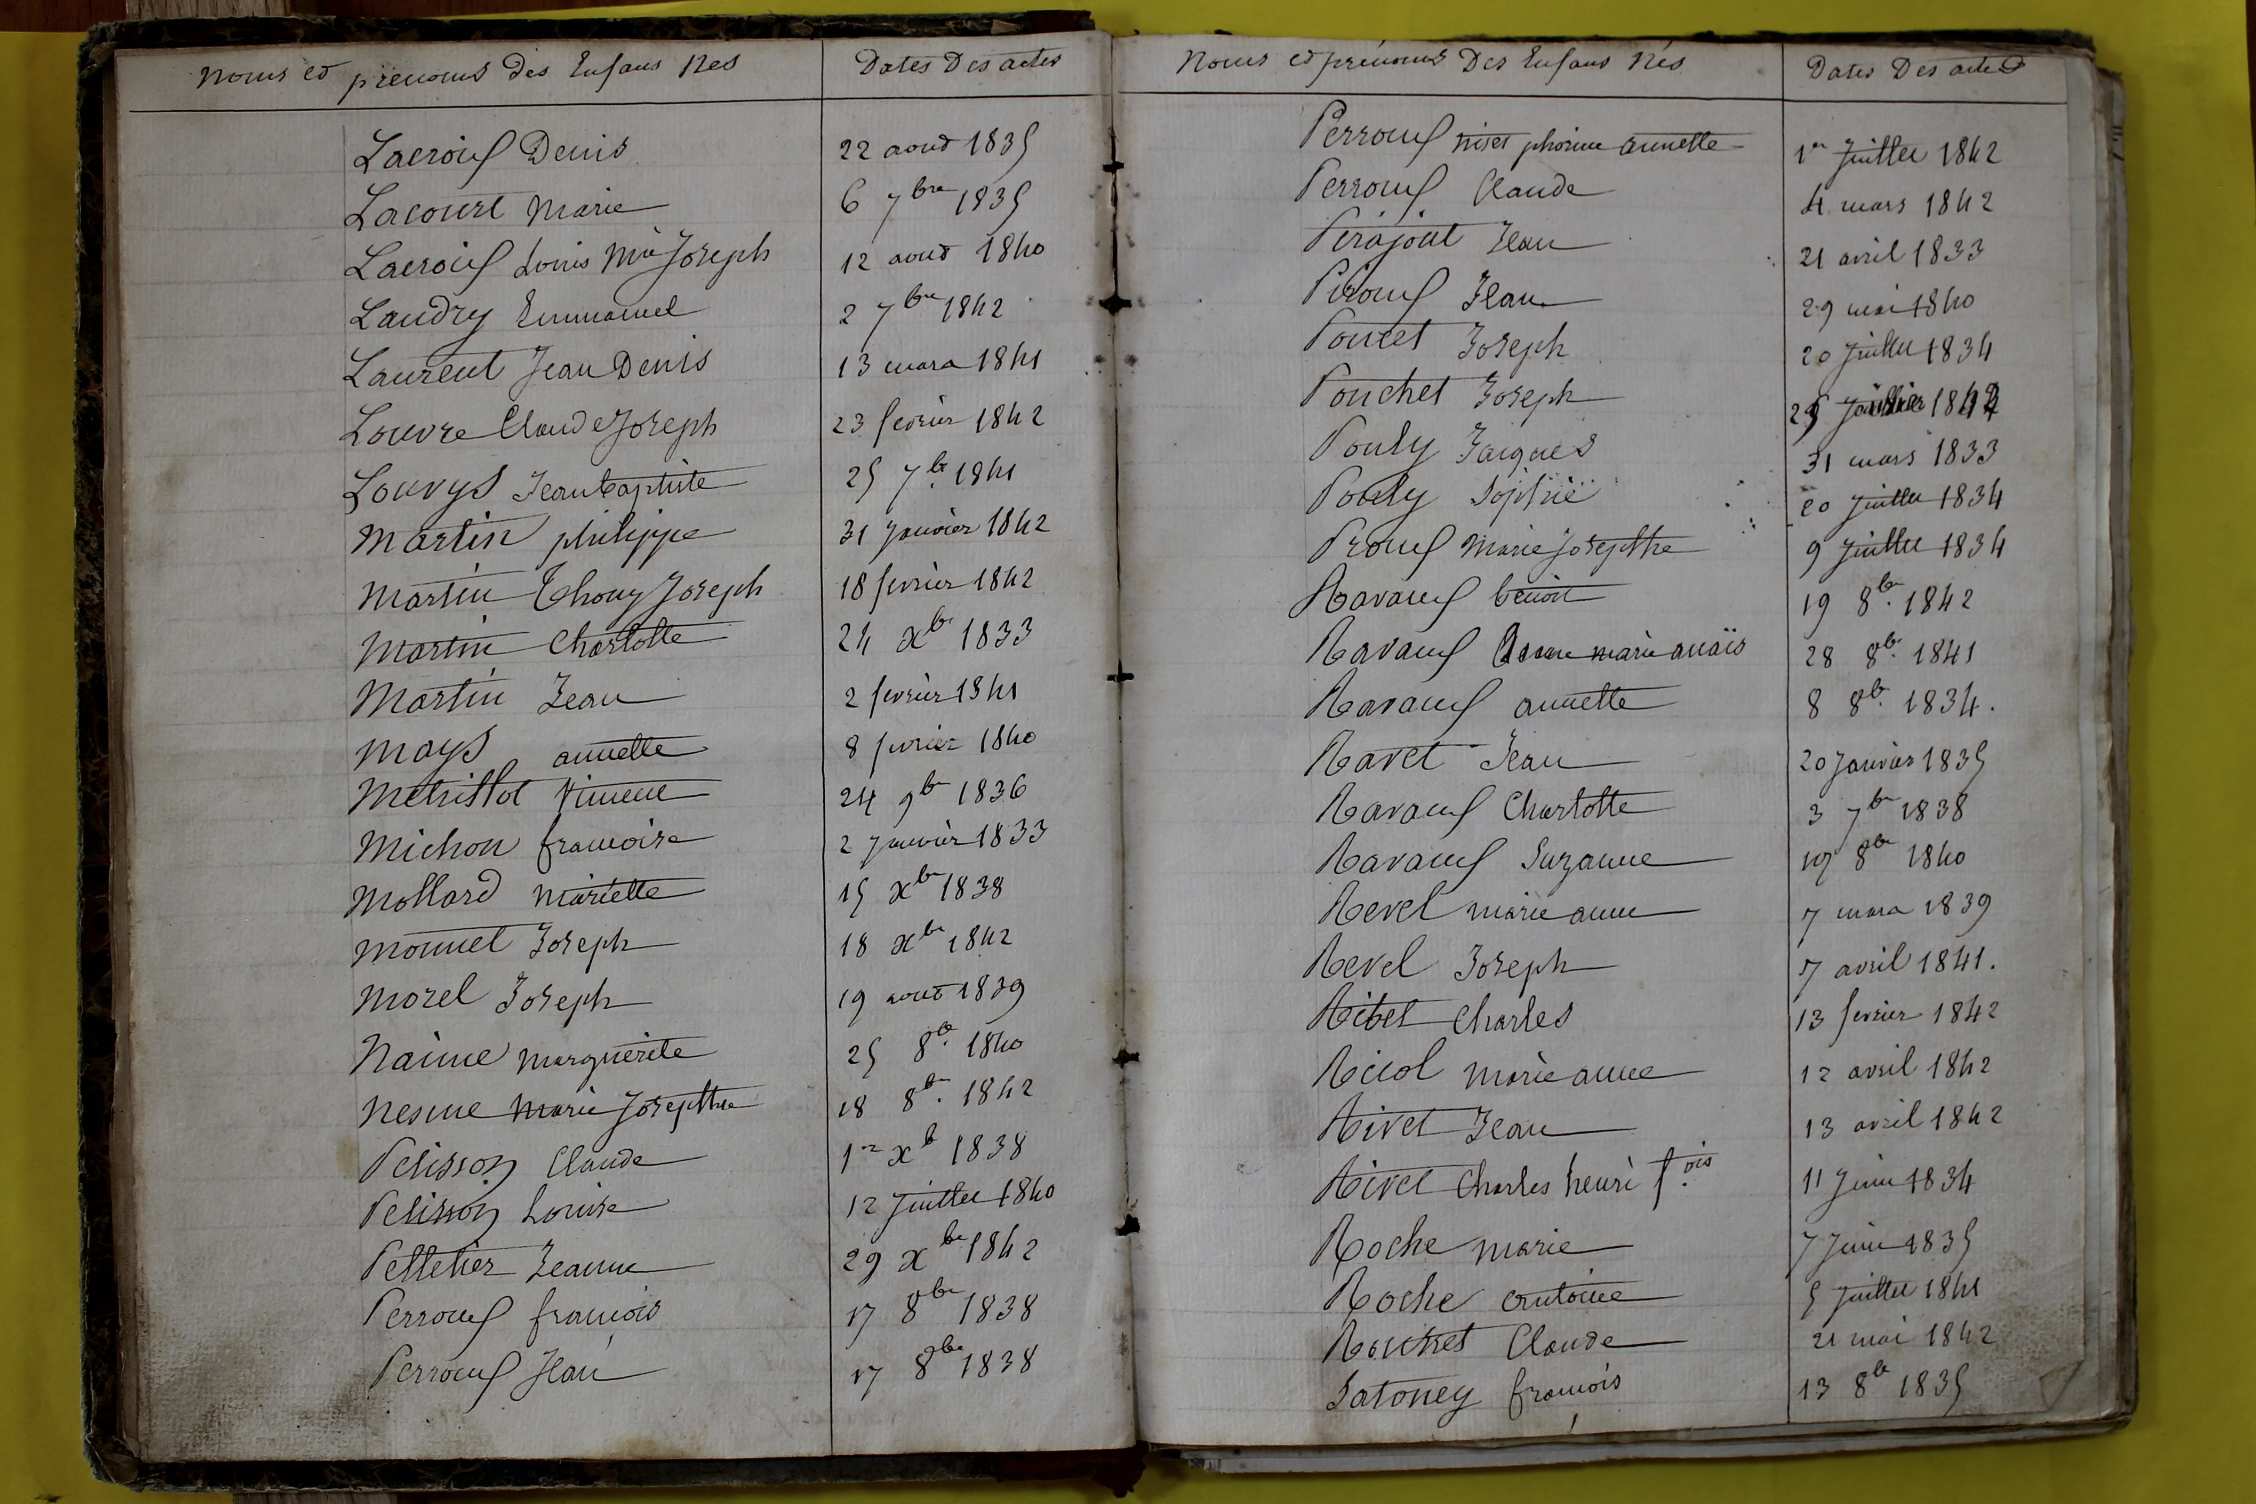 Noms et prenoms Des Enfans Nés
Dates Des actes
Lacroix Denis 22 aout 1835
Lacourt Marie 6 7bre 1835
Lacroix Louis Mie Joseph 12 aout 1840
Landry Emmanuel 2 7bre 1842
Laurent Jean Denis 13 mars 1841
Louvre Claude Joseph 23 fevrier 1842
Louvys Jean baptiste 25 7br 1841
Martin philippe 31 Janvier 1842
Martin Thony Joseph 18 fevrier 1842
Martin Charlotte 24 xbr 1833
Martin Jean 2 fevrier 1841
Mays annette 8 fevrier 1840
Metrillot 24 9br 1836
Michon francoise 2 Janvier 1833
Mollard Mariette 15 xbre 1838
Monnet Joseph 18 xbre 1842
Morel Joseph 19 aout 1839
Naime Marguerite 25 8b. 1840
Nesme Marie Josepthe 18 8b. 1842
Pelisson Claude 1er xb 1838
Pelisson Louise 12 Juillet 1840
Pelletier Jeanne 29 xbre 1842
Perroux francois 17 8bre 1838
Perroux Jean 17 8bre 1838
Noms et prénoms Des Enfans Nés
Dates Des actes
Perroux phorine annette 1er Juillet 1842
Perroux Claude 4 mars 1842
Perajoat Jean 21 avril 1833
Piroux Jean 29 mai 1840
Poncet Joseph 20 Juillet 1834
Ponchet Joseph 25
Pouly Jacques 31 mars 1833
Pouly Sophie 20 Juillet 1834
Proux Marie Josepthe 9 Juillet 1834
Ravaux benoit 19 8br. 1842
Ravaux marie anaïs 28 8br. 1841
Ravaux annette 8 8b. 1834.
Ravet Jean 20 Janvier 1835
Ravaux Charlotte 3 7bre 1838
Ravaux Suzanne 8bre 1840
Revel marie anne 7 mars 1839
Revel Joseph 17 avril 1841.
Ribet Charles 13 fevrier 1842
Ricol Marie anne 12 avril 1842
Rivet Jean 13 avril 1842
Rivet Charles henri f.ois 11 Juin 1834
Roche Marie 7 Juin 1835
Roche antoine 5 Juillet 1841
Rouchet Claude 21 mai 1842
Satoney francois 13 8b 1835